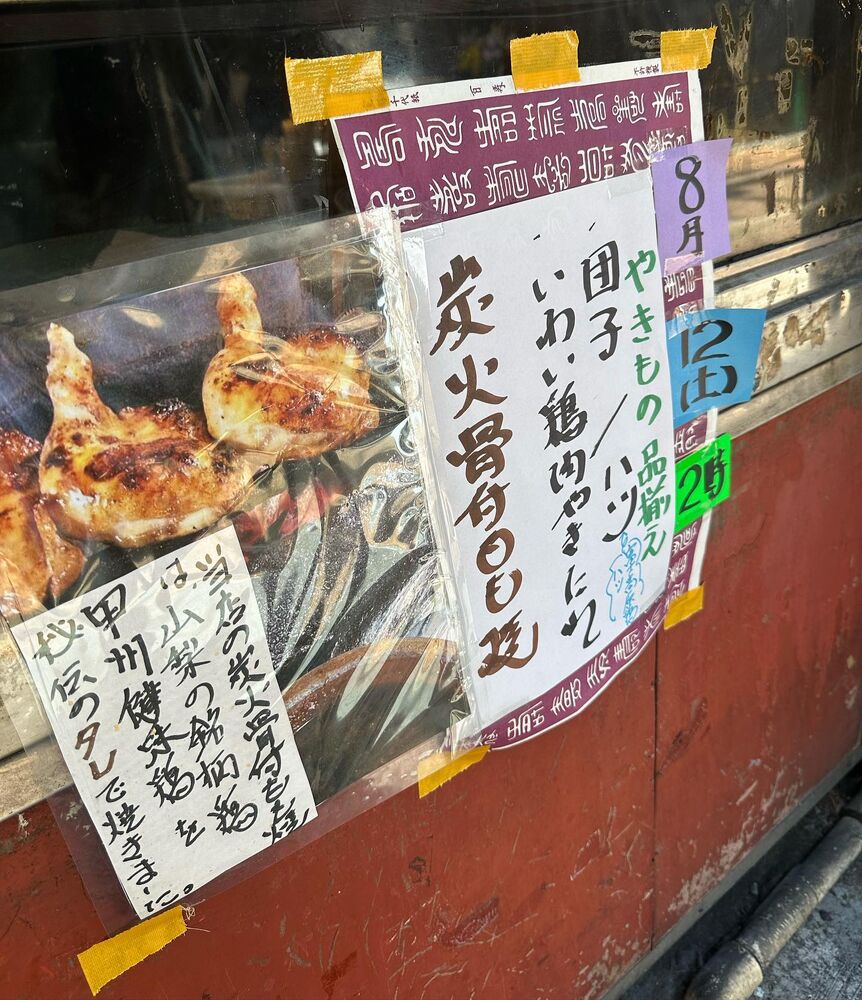 千代紙
百寿
不許複製
8月
12(土)
2時
やきもの 品揃え
団子／ハツ
いわい鶏肉やきたれ
炭火骨付もも焼
当店の炭火骨付もも焼
は山梨の銘柄鶏
甲州健味鶏を
秘伝のタレで焼きました。